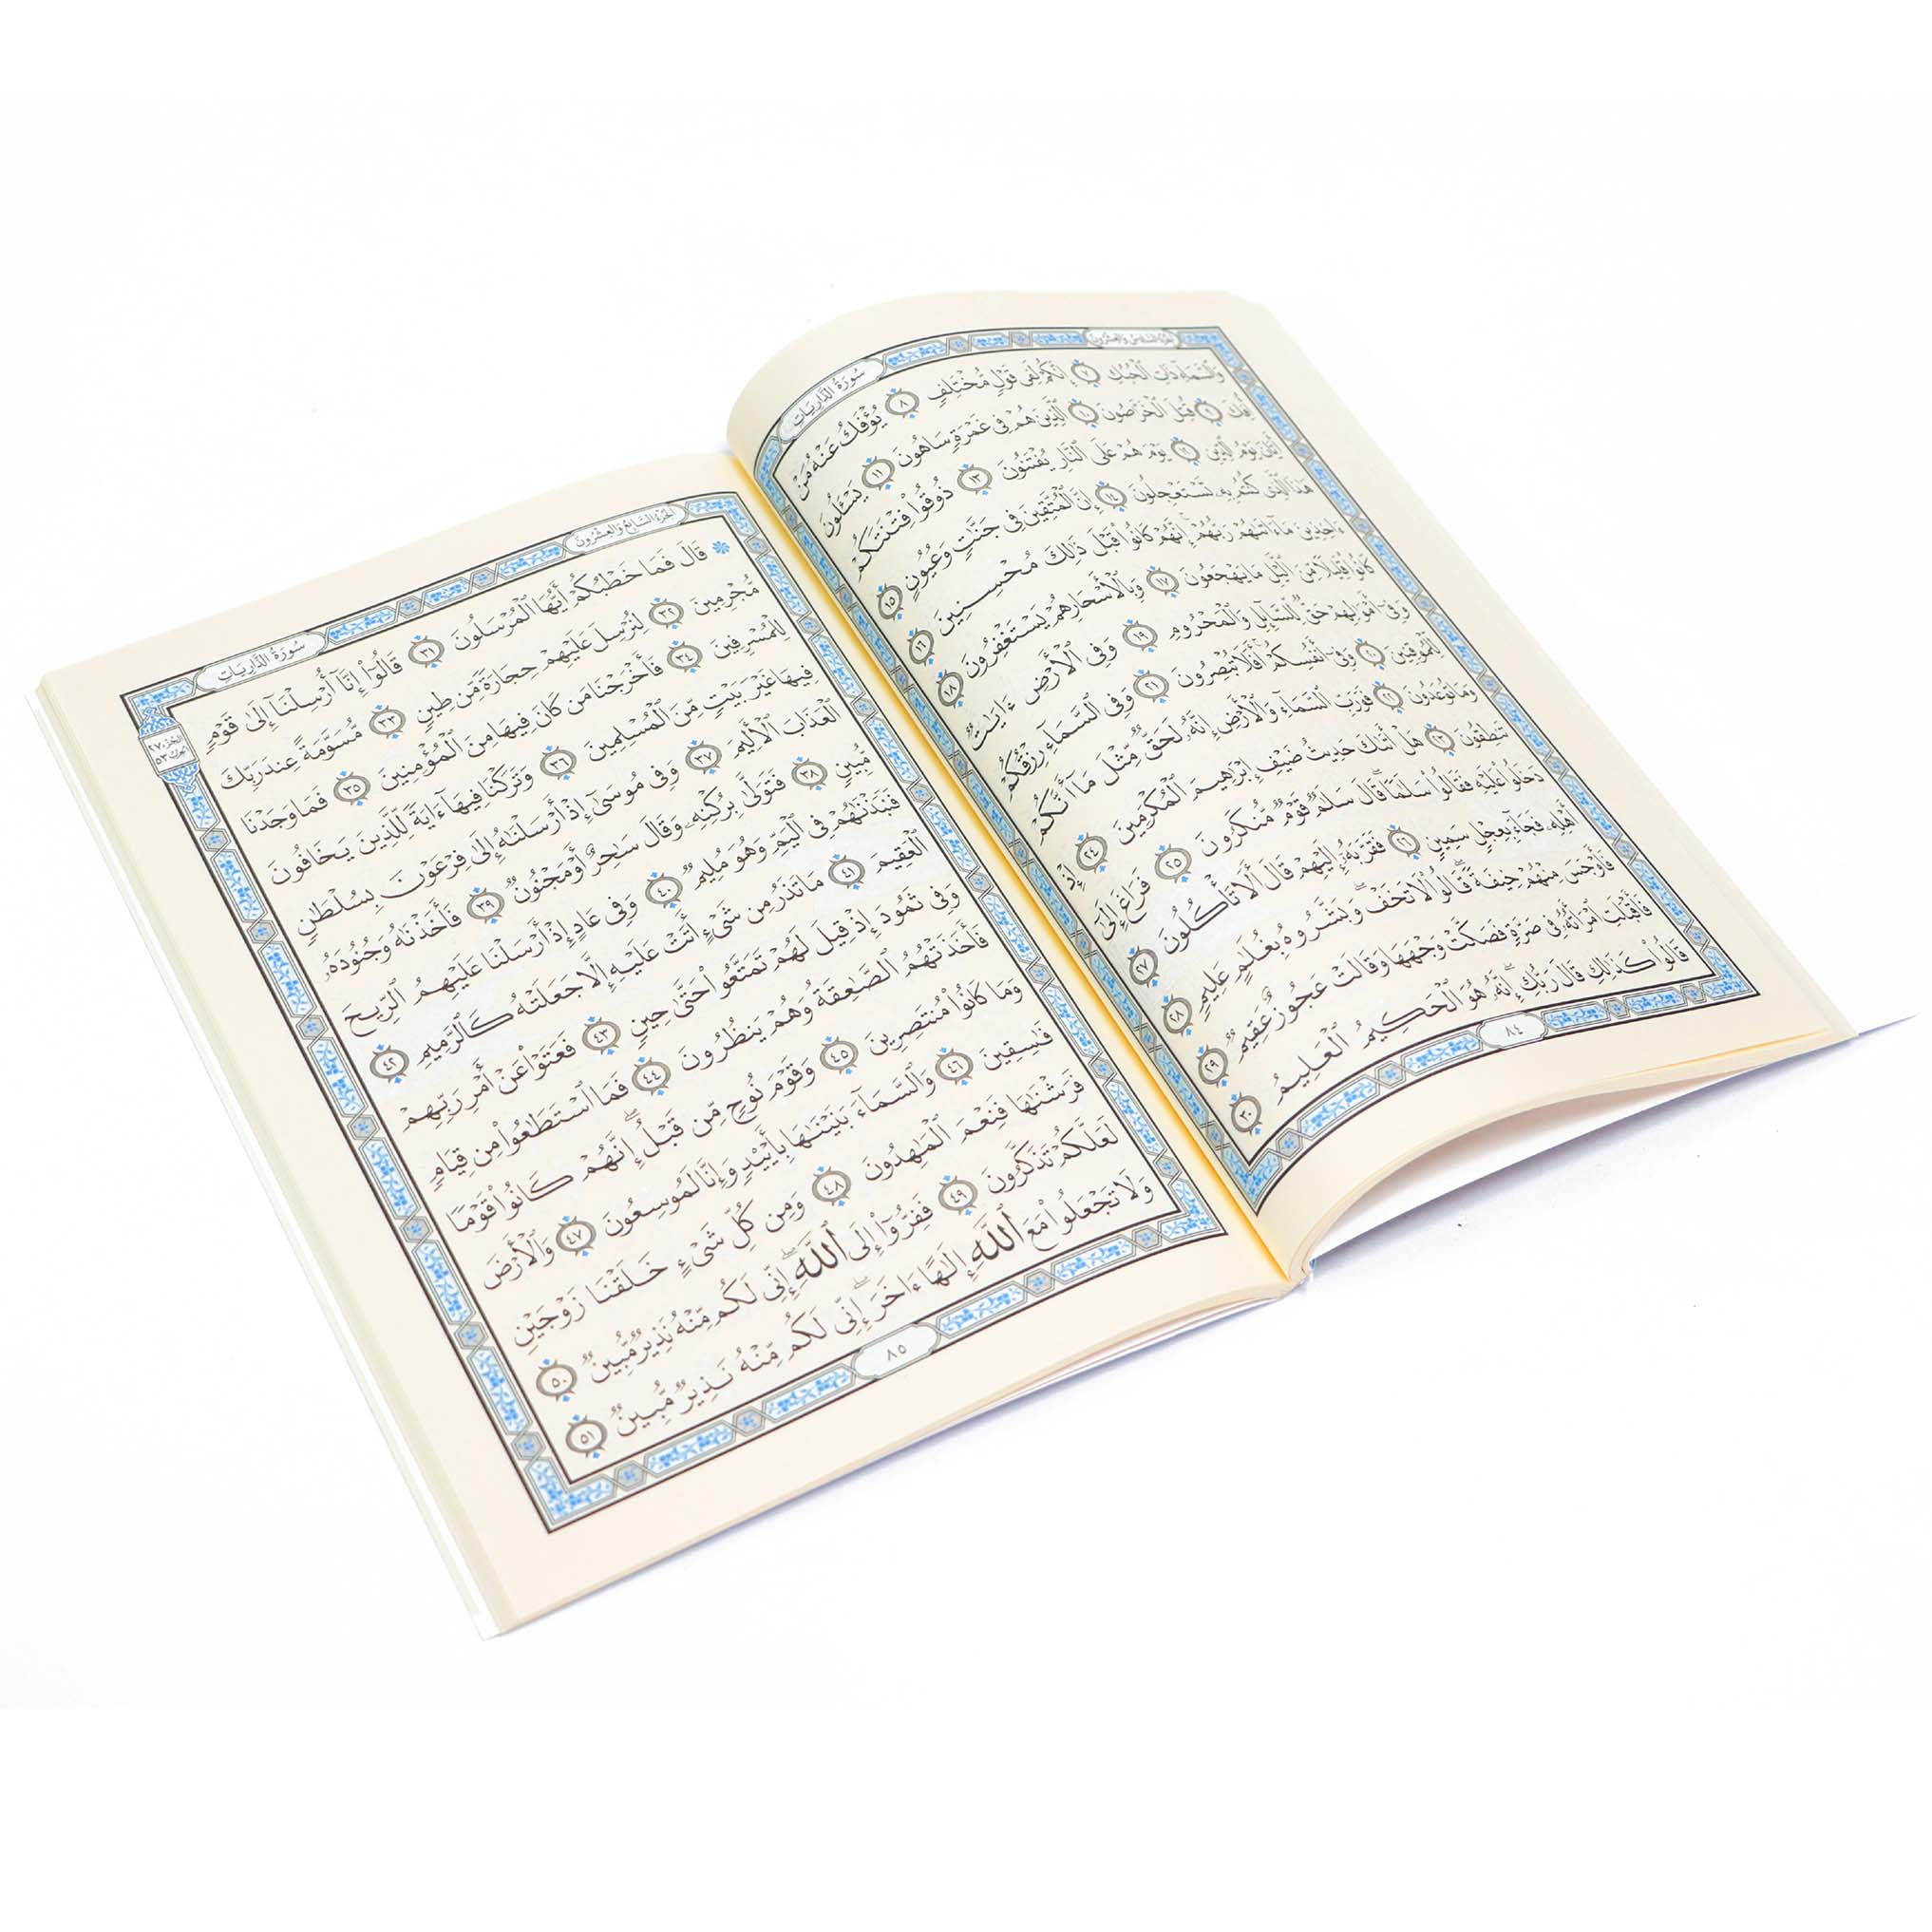 الجزء السادس والعشرون
سورة الذاريات
وَٱلسَّمَآءِ ذَاتِ ٱلْحُبُكِ ٧ إِنَّكُمْ لَفِى قَوْلٍ مُّخْتَلِفٍ ٨ يُؤْفَكُ عَنْهُ مَنْ
أُفِكَ ٩ قُتِلَ ٱلْخَرَّٰصُونَ ١٠ ٱلَّذِينَ هُمْ فِى غَمْرَةٍ سَاهُونَ ١١ يَسْـَٔلُونَ
أَيَّانَ يَوْمُ ٱلدِّينِ ١٢ يَوْمَ هُمْ عَلَى ٱلنَّارِ يُفْتَنُونَ ١٣ ذُوقُوا۟ فِتْنَتَكُمْ
هَٰذَا ٱلَّذِى كُنتُم بِهِۦ تَسْتَعْجِلُونَ ١٤ إِنَّ ٱلْمُتَّقِينَ فِى جَنَّٰتٍ وَعُيُونٍ ١٥
ءَاخِذِينَ مَآ ءَاتَىٰهُمْ رَبُّهُمْ ۚ إِنَّهُمْ كَانُوا۟ قَبْلَ ذَٰلِكَ مُحْسِنِينَ ١٦
كَانُوا۟ قَلِيلًا مِّنَ ٱلَّيْلِ مَا يَهْجَعُونَ ١٧ وَبِٱلْأَسْحَارِ هُمْ يَسْتَغْفِرُونَ ١٨
وَفِىٓ أَمْوَٰلِهِمْ حَقٌّ لِّلسَّآئِلِ وَٱلْمَحْرُومِ ١٩ وَفِى ٱلْأَرْضِ ءَايَٰتٌ
لِّلْمُوقِنِينَ ٢٠ وَفِىٓ أَنفُسِكُمْ ۚ أَفَلَا تُبْصِرُونَ ٢١ وَفِى ٱلسَّمَآءِ رِزْقُكُمْ
وَمَا تُوعَدُونَ ٢٢ فَوَرَبِّ ٱلسَّمَآءِ وَٱلْأَرْضِ إِنَّهُۥ لَحَقٌّ مِّثْلَ مَآ أَنَّكُمْ
تَنطِقُونَ ٢٣ هَلْ أَتَىٰكَ حَدِيثُ ضَيْفِ إِبْرَٰهِيمَ ٱلْمُكْرَمِينَ ٢٤ إِذْ
دَخَلُوا۟ عَلَيْهِ فَقَالُوا۟ سَلَٰمًا ۖ قَالَ سَلَٰمٌ قَوْمٌ مُّنكَرُونَ ٢٥ فَرَاغَ إِلَىٰٓ
أَهْلِهِۦ فَجَآءَ بِعِجْلٍ سَمِينٍ ٢٦ فَقَرَّبَهُۥٓ إِلَيْهِمْ قَالَ أَلَا تَأْكُلُونَ ٢٧
فَأَوْجَسَ مِنْهُمْ خِيفَةً ۖ قَالُوا۟ لَا تَخَفْ ۖ وَبَشَّرُوهُ بِغُلَٰمٍ عَلِيمٍ ٢٨
فَأَقْبَلَتِ ٱمْرَأَتُهُۥ فِى صَرَّةٍ فَصَكَّتْ وَجْهَهَا وَقَالَتْ عَجُوزٌ عَقِيمٌ ٢٩
قَالُوا۟ كَذَٰلِكِ قَالَ رَبُّكِ ۖ إِنَّهُۥ هُوَ ٱلْحَكِيمُ ٱلْعَلِيمُ ٣٠
٨٤
الجزء السابع والعشرون
سورة الذاريات
الجزء ٢٧
الحزب ٥٣
۞ قَالَ فَمَا خَطْبُكُمْ أَيُّهَا ٱلْمُرْسَلُونَ ٣١ قَالُوٓا۟ إِنَّآ أُرْسِلْنَآ إِلَىٰ قَوْمٍ
مُّجْرِمِينَ ٣٢ لِنُرْسِلَ عَلَيْهِمْ حِجَارَةً مِّن طِينٍ ٣٣ مُّسَوَّمَةً عِندَ رَبِّكَ
لِلْمُسْرِفِينَ ٣٤ فَأَخْرَجْنَا مَن كَانَ فِيهَا مِنَ ٱلْمُؤْمِنِينَ ٣٥ فَمَا وَجَدْنَا
فِيهَا غَيْرَ بَيْتٍ مِّنَ ٱلْمُسْلِمِينَ ٣٦ وَتَرَكْنَا فِيهَآ ءَايَةً لِّلَّذِينَ يَخَافُونَ
ٱلْعَذَابَ ٱلْأَلِيمَ ٣٧ وَفِى مُوسَىٰٓ إِذْ أَرْسَلْنَٰهُ إِلَىٰ فِرْعَوْنَ بِسُلْطَٰنٍ
مُّبِينٍ ٣٨ فَتَوَلَّىٰ بِرُكْنِهِۦ وَقَالَ سَٰحِرٌ أَوْ مَجْنُونٌ ٣٩ فَأَخَذْنَٰهُ وَجُنُودَهُۥ
فَنَبَذْنَٰهُمْ فِى ٱلْيَمِّ وَهُوَ مُلِيمٌ ٤٠ وَفِى عَادٍ إِذْ أَرْسَلْنَا عَلَيْهِمُ ٱلرِّيحَ
ٱلْعَقِيمَ ٤١ مَا تَذَرُ مِن شَىْءٍ أَتَتْ عَلَيْهِ إِلَّا جَعَلَتْهُ كَٱلرَّمِيمِ ٤٢
وَفِى ثَمُودَ إِذْ قِيلَ لَهُمْ تَمَتَّعُوا۟ حَتَّىٰ حِينٍ ٤٣ فَعَتَوْا۟ عَنْ أَمْرِ رَبِّهِمْ
فَأَخَذَتْهُمُ ٱلصَّٰعِقَةُ وَهُمْ يَنظُرُونَ ٤٤ فَمَا ٱسْتَطَٰعُوا۟ مِن قِيَامٍ
وَمَا كَانُوا۟ مُنتَصِرِينَ ٤٥ وَقَوْمَ نُوحٍ مِّن قَبْلُ ۖ إِنَّهُمْ كَانُوا۟ قَوْمًا
فَٰسِقِينَ ٤٦ وَٱلسَّمَآءَ بَنَيْنَٰهَا بِأَيْيْدٍ وَإِنَّا لَمُوسِعُونَ ٤٧ وَٱلْأَرْضَ
فَرَشْنَٰهَا فَنِعْمَ ٱلْمَٰهِدُونَ ٤٨ وَمِن كُلِّ شَىْءٍ خَلَقْنَا زَوْجَيْنِ
لَعَلَّكُمْ تَذَكَّرُونَ ٤٩ فَفِرُّوٓا۟ إِلَى ٱللَّهِ ۖ إِنِّى لَكُم مِّنْهُ نَذِيرٌ مُّبِينٌ ٥٠
وَلَا تَجْعَلُوا۟ مَعَ ٱللَّهِ إِلَٰهًا ءَاخَرَ ۖ إِنِّى لَكُم مِّنْهُ نَذِيرٌ مُّبِينٌ ٥١
٨٥